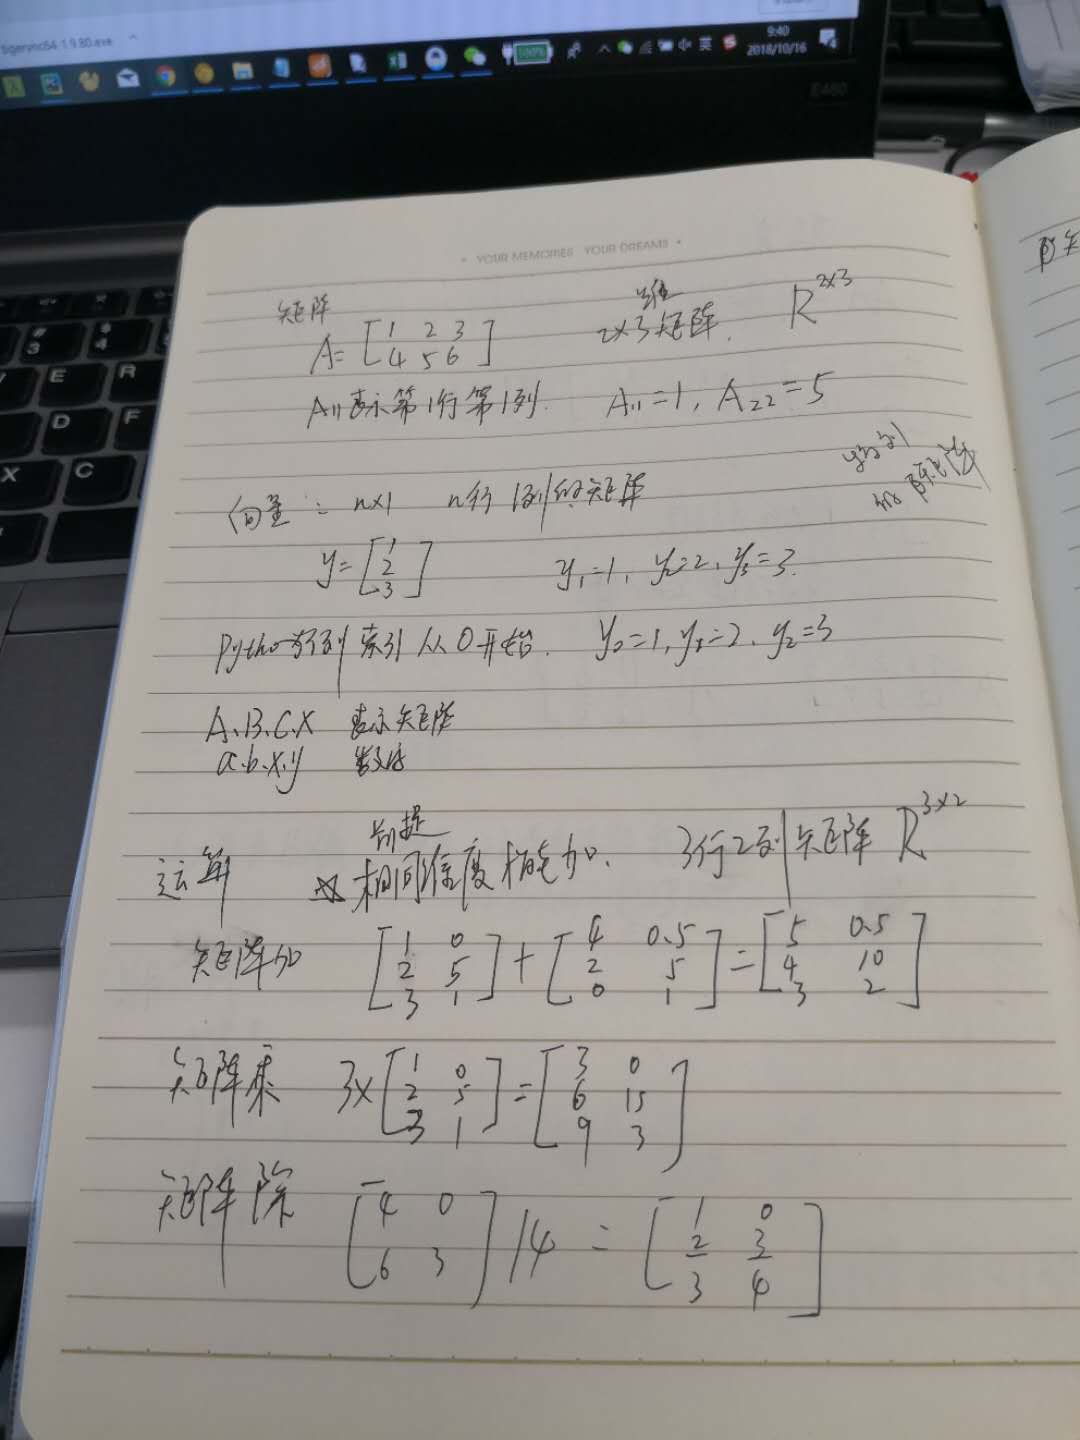 tigervnc64-1.9.80.exe
100%
英
9:40
2018/10/16
E460
3
4
E
R
D
F
X
C
• YOUR MEMORIES YOUR DREAMS •
矩阵
A= [1 2 3
4 5 6]
2×3矩阵. R^2×3
A11表示第1行第1列. A11=1, A22=5
向量: n×1 n行1列的矩阵
y= [1
2
3]
y1=1, y2=2, y3=3.
Python 索引从0开始. y0=1, y1=2, y2=3
A.B.C.X 表示矩阵
a.b.x.y
前提
运算 相同维度才能加. 3行2列矩阵 R^3×2
矩阵加 [1 0
2 5
3 1] + [4 0.5
2 5
0 1] = [5 0.5
4 10
3 2]
矩阵乘 3× [1 0
2 5
3 1] = [3 0
6 15
9 3]
矩阵除 [4 0
6 3] /4 = [1 0
2/3 3/4]